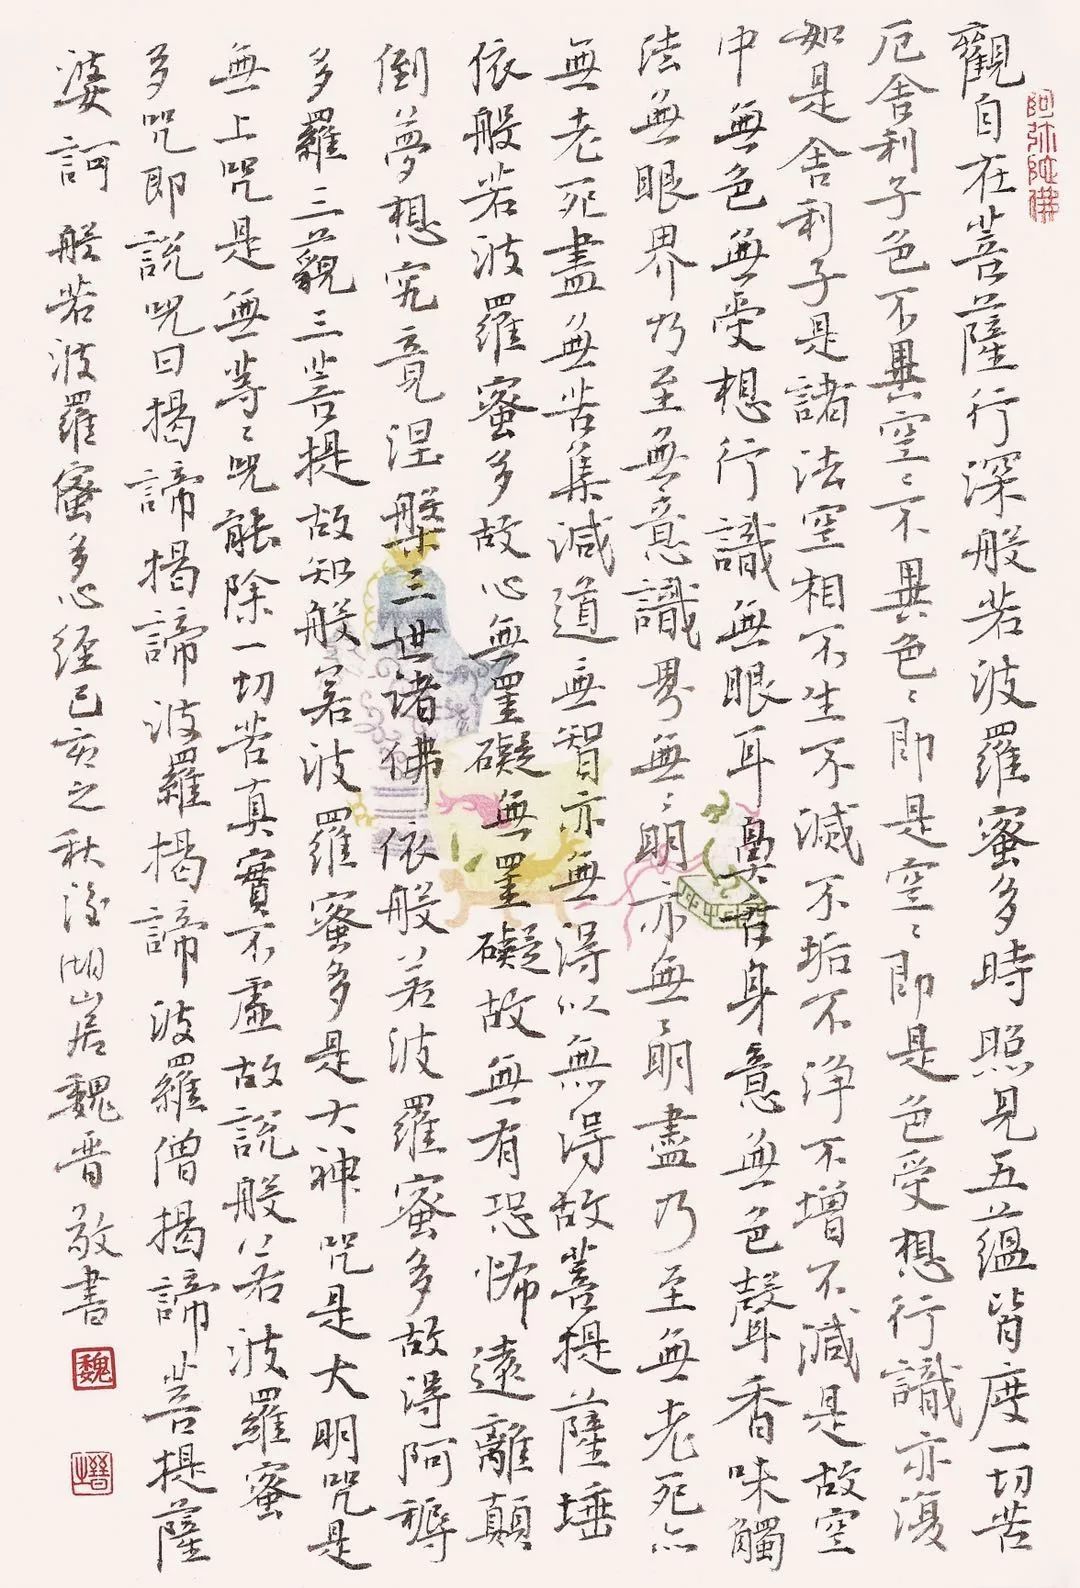 阿弥陀佛
觀自在菩薩行深般若波羅蜜多時照見五蘊皆度一切苦
厄舍利子色不異空〻不異色〻即是空〻即是色受想行識亦復
如是舍利子是諸法空相不生不滅不垢不淨不增不減是故空
中無色無受想行識無眼耳鼻舌身意無色聲香味觸
法無眼界乃至無意識界無〻明亦無〻明盡乃至無老死亦
無老死盡無苦集滅道無智亦無得以無得故菩提薩埵
依般若波羅蜜多故心無罣礙無罣礙故無有恐怖遠離顛
倒夢想究竟涅槃三世诸佛依般若波羅蜜多故得阿耨
多羅三藐三菩提故知般若波羅蜜多是大神咒是大明咒是
無上咒是無等〻咒能除一切苦真實不虛故說般若波羅蜜
多咒即說咒曰揭諦揭諦波羅揭諦波羅僧揭諦菩提薩
婆訶 般若波羅蜜多心經己亥之秋後湖山居魏晋敬書
魏
晉